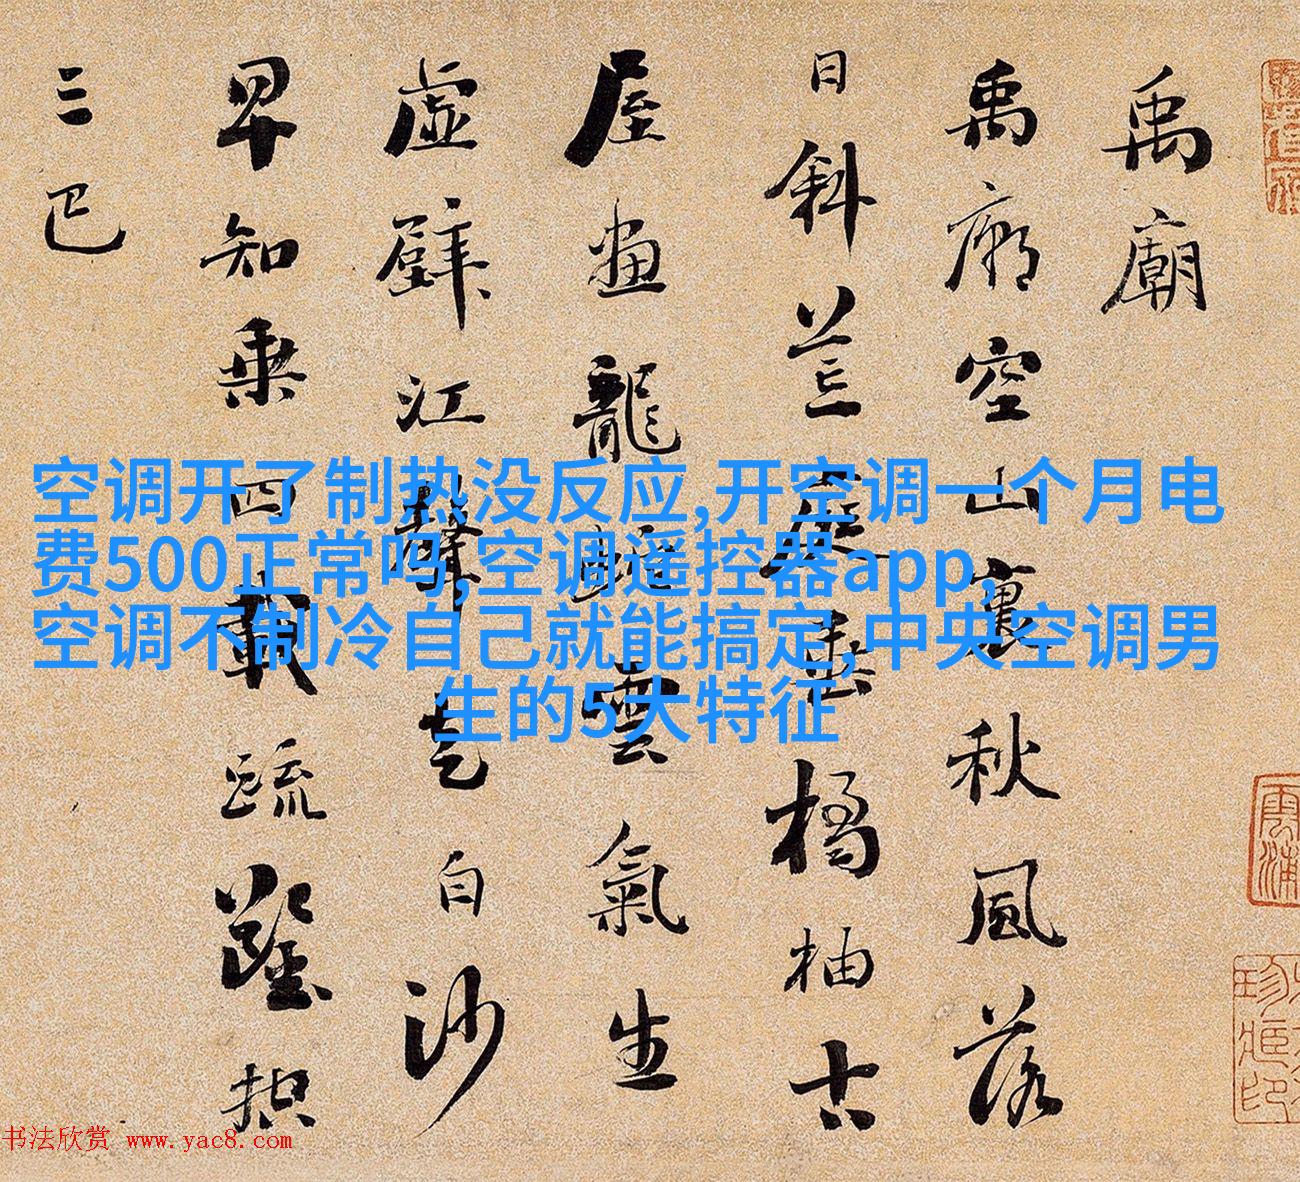 禹廟
禹廟空山裏秋風落
日斜荒庭垂橘柚古
屋畫龍蛇雲氣生
虛壁江聲走白沙
早知乘四載疏鑿控
三巴
空调开了制热没反应,开空调一个月电
费500正常吗,空调遥控器app,
空调不制冷自己就能搞定,中央空调男
生的5大特征
书法欣赏 www.yac8.com